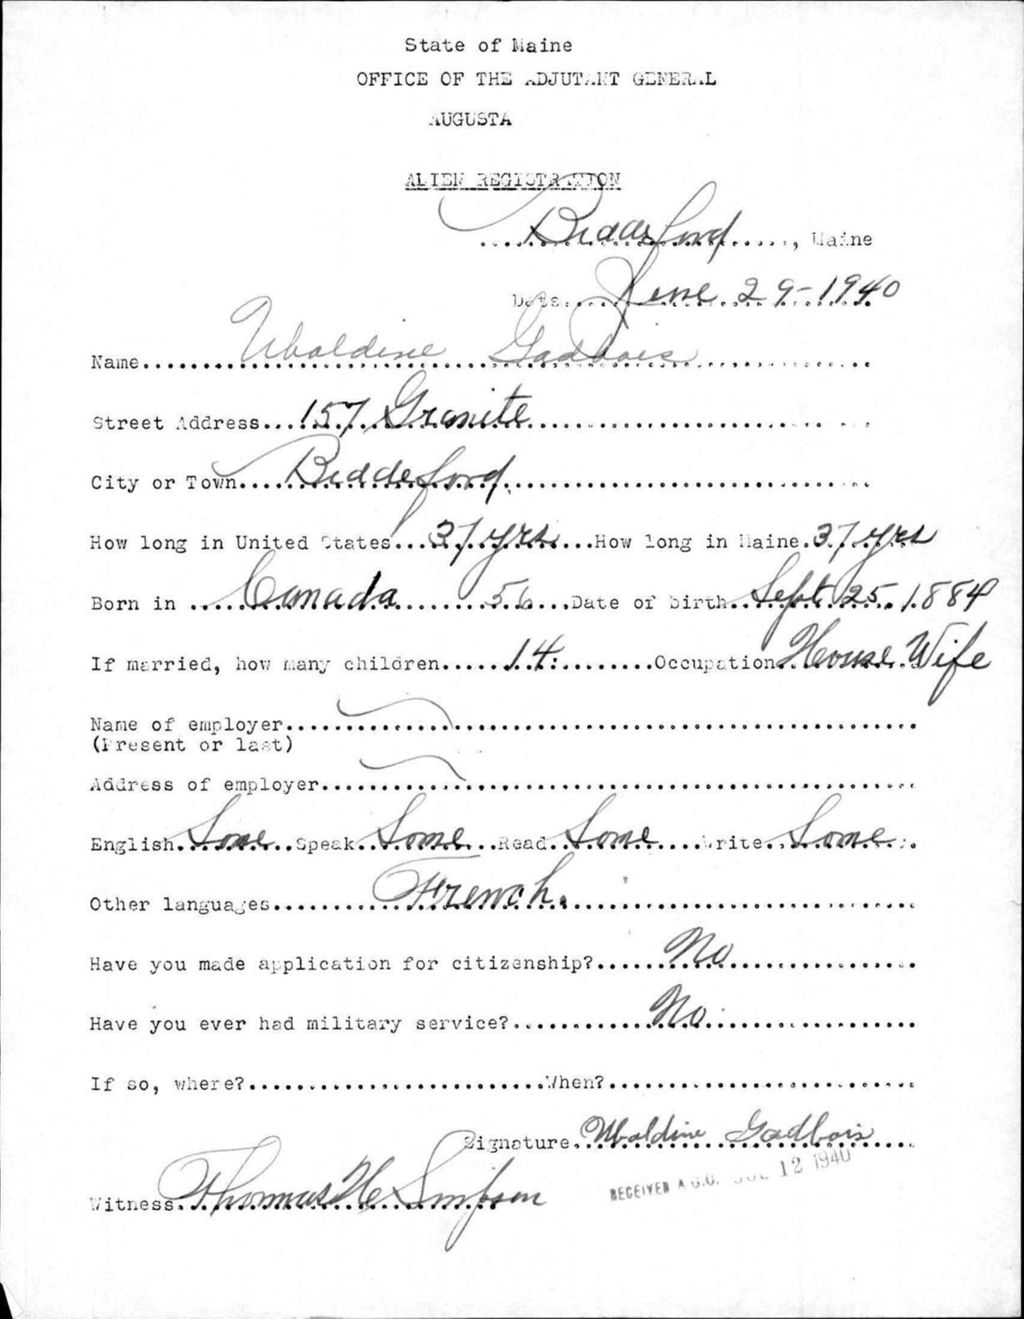 State of Maine
OFFICE OF THE ADJUTANT GENERAL
AUGUSTA
ALIEN REGISTRATION
Biddeford, Maine
Date June 29-1940
Name Ubaldine Gadbois
Street Address 157 Granite
City or Town Biddeford
How long in United States 37 yrs How long in Maine 37 yrs
Born in Canada 56 Date of birth Sept 25. 1884
If married, how many children 14 Occupation House Wife
Name of employer
(Present or last)
Address of employer
English Some Speak Some Read Some Write Some
Other languages French.
Have you made application for citizenship? No
Have you ever had military service? No
If so, where? When?
Signature Ubaldine Gadbois
RECEIVED A.G.O. JUL 12 1940
Witness Thomas H Simpson